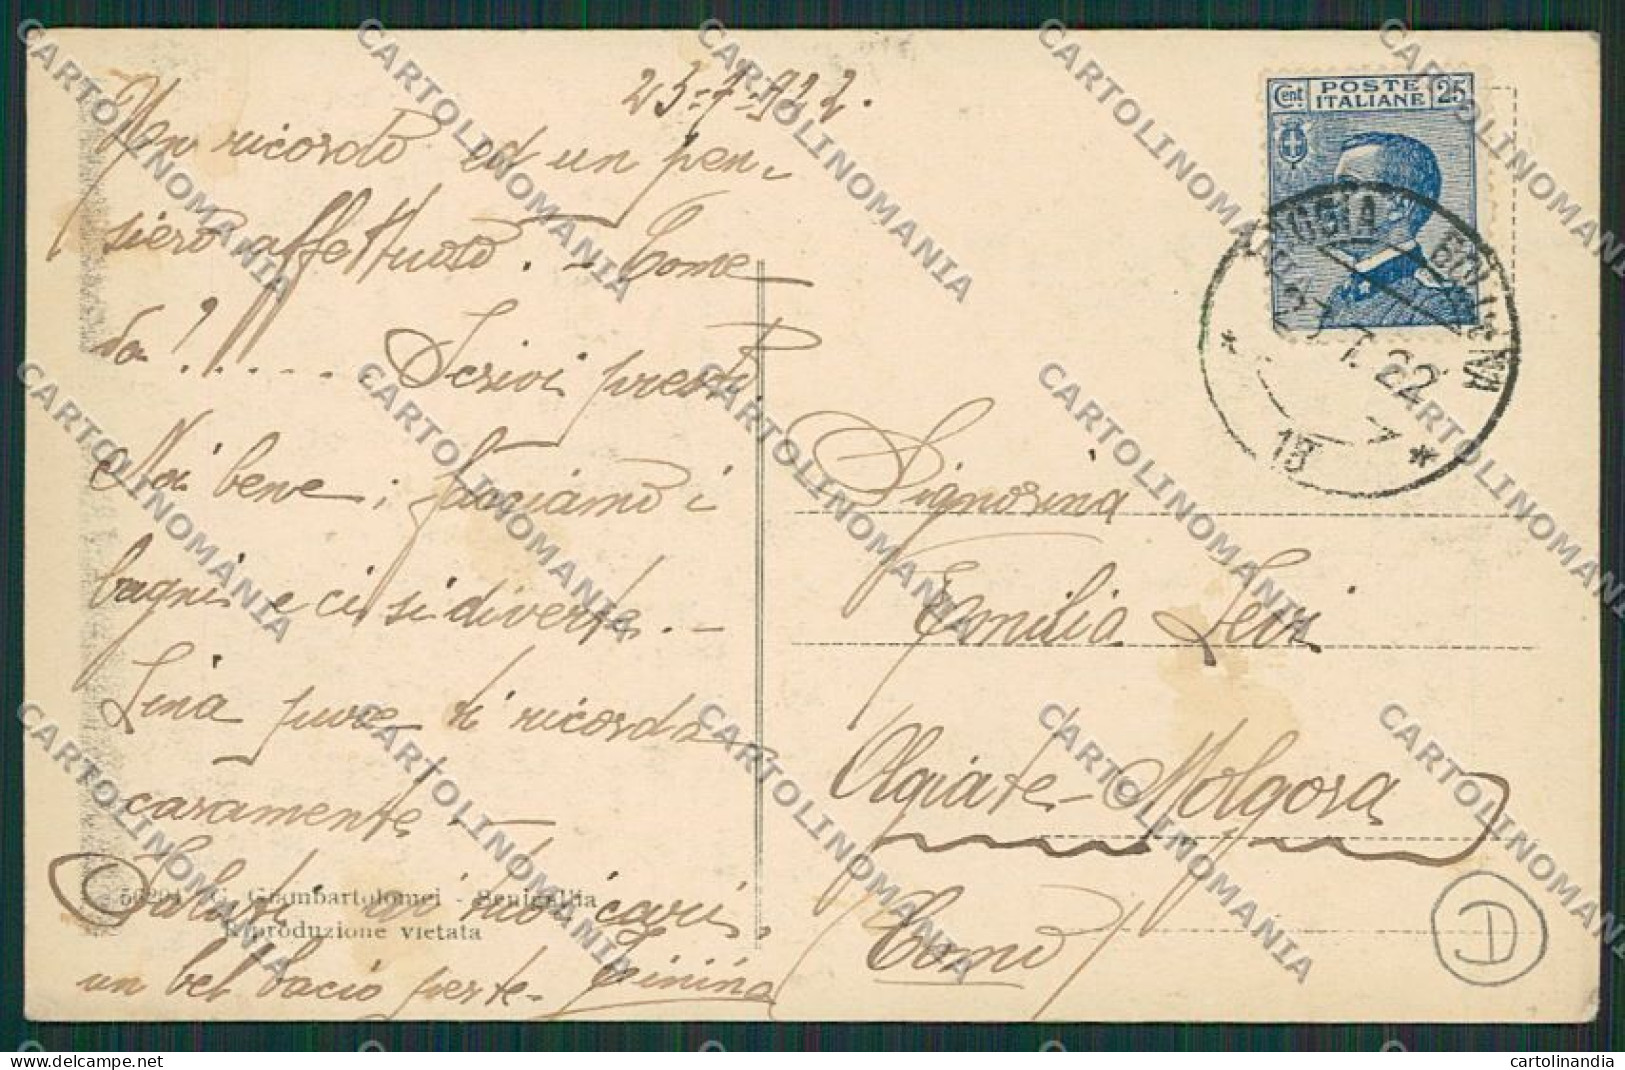 25-7-922.
Un ricordo ed un pen-
siero affettuoso. - Come
va?..... Scrivi presto.
Noi bene; facciamo i
bagni e ci si diverte. -
Lina pure ti ricorda
caramente. -
Saluti ai tuoi cari,
un bel bacio per te. Pinina
56204 G. Giambartolomei - Senigallia
Riproduzione vietata
Cent POSTE ITALIANE 25
7.22
Signorina
Emilia Levi
Olgiate-Molgora
Como
D
CARTOLINOMANIA
cartolinandia